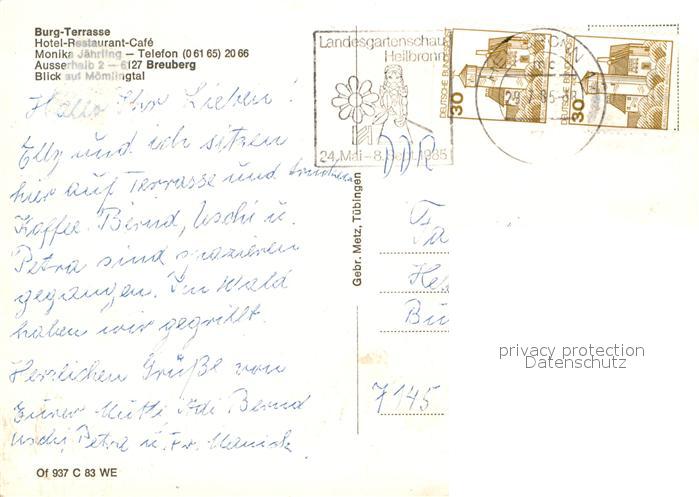 Burg-Terrasse
Hotel-Restaurant-Café
Monika Jährling — Telefon (0 61 65) 20 66
Ausserhalb 2 — 6127 Breuberg
Blick auf Mömlingtal
Hallo Ihr Lieben!
Elly und ich sitzen
hier auf Terrasse und trinken
Kaffee. Bernd, Uschi u.
Petra sind spazieren
gegangen. Im Wald
haben wir gegrillt.
Herzlichen Grüße von
Eurer Mutti Adi Bernd
Uschi, Petra u. Fr.
Of 937 C 83 WE
Gebr. Metz, Tübingen
Landesgartenschau
Heilbronn
24. Mai – 8. Sept. 1985
DEUTSCHE BUNDESPOST
30
DEUTSCHE BUNDESPOST
30
DDR
Fa
Bu
7145
privacy protection
Datenschutz